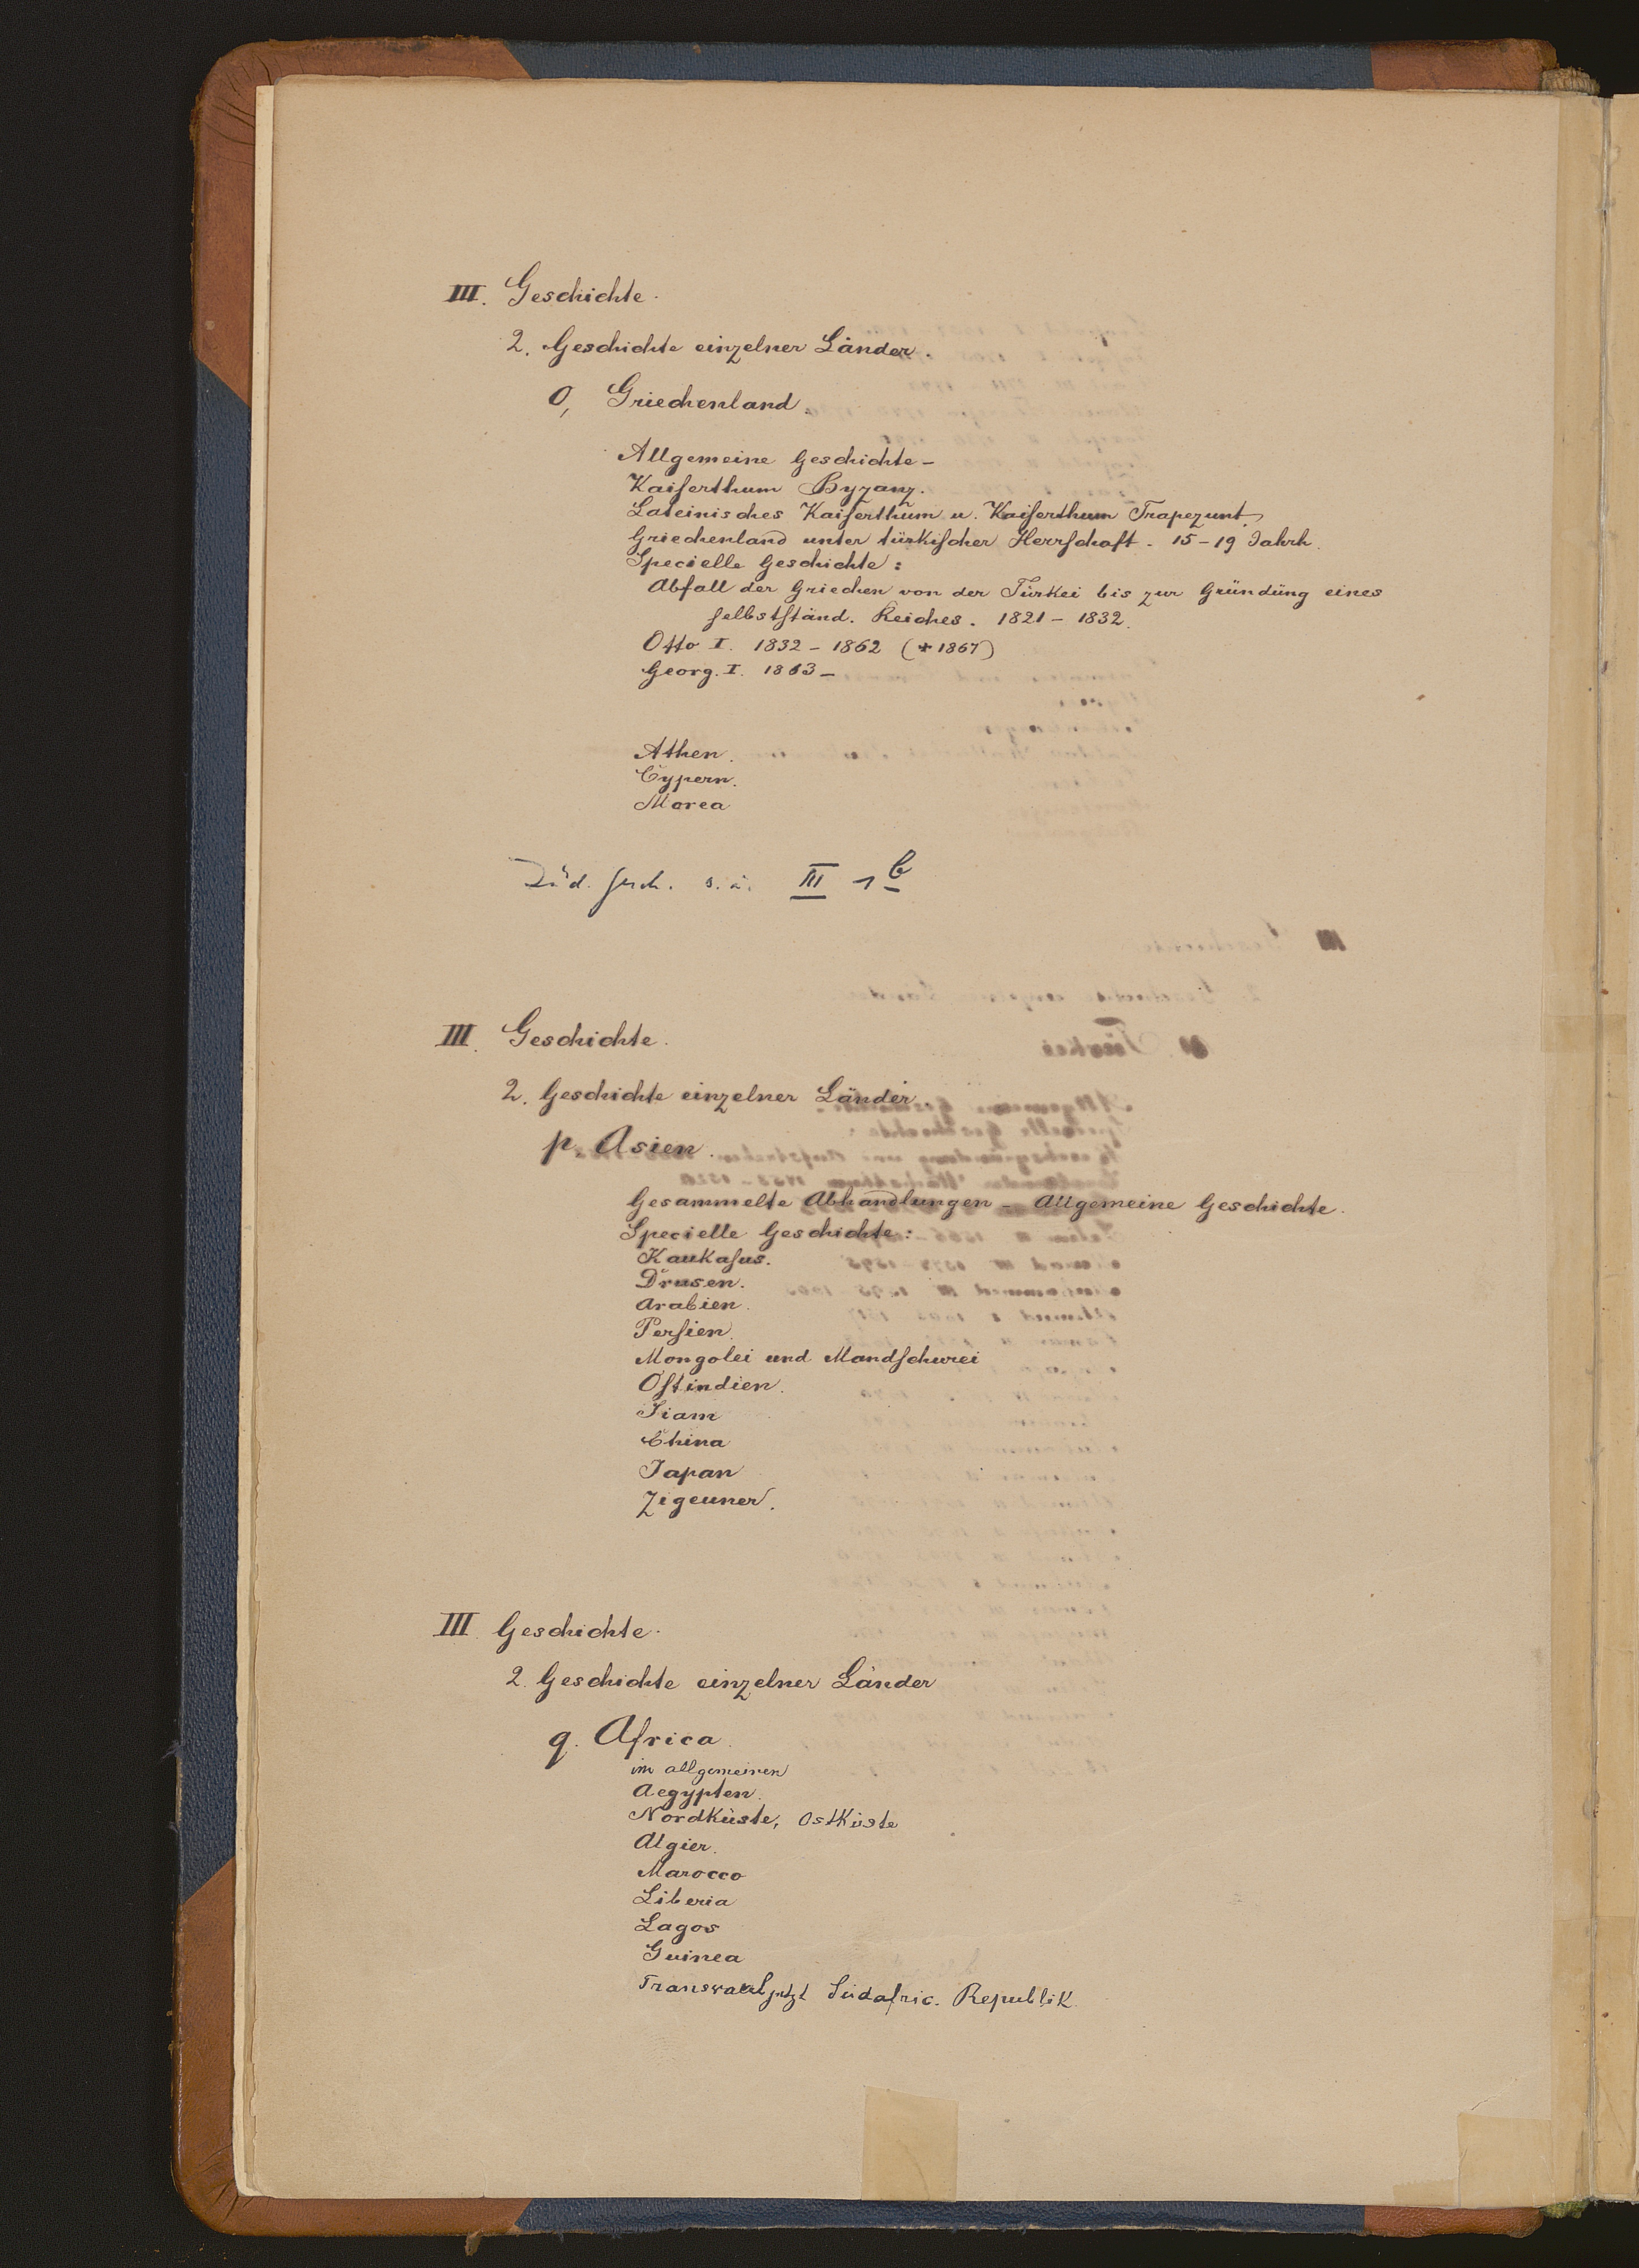 III. Geschichte.
2. Geschichte einzelner Länder.
O, Griechenland.
Allgemeine Geschichte –
Kaiserthum Byzanz.
Lateinisches Kaiserthum u. Kaiserthum Trapezunt.
Griechenland unter türkischer Herrschaft. 15–19 Jahrh.
Specielle Geschichte:
Abfall der Griechen von der Türkei bis zur Gründung eines
selbstständ. Reiches. 1821 – 1832.
Otto I. 1832 – 1862 (+ 1867)
Georg. I. 1863 –
Athen.
Cypern.
Morea
Jüd. Gesch. s. u. III 1 b
III. Geschichte.
2. Geschichte einzelner Länder.
p. Asien.
Gesammelte Abhandlungen – Allgemeine Geschichte.
Specielle Geschichte:
Kaukasus.
Drusen.
Arabien.
Persien.
Mongolei und Mandschurei
Ostindien.
Siam
China
Japan
Zigeuner.
III. Geschichte.
2. Geschichte einzelner Länder
q. Africa.
im allgemeinen
Aegypten.
Nordküste, Ostküste
Algier.
Marocco
Liberia
Lagos
Guinea
Transvaal jetzt Südafric. Republik.